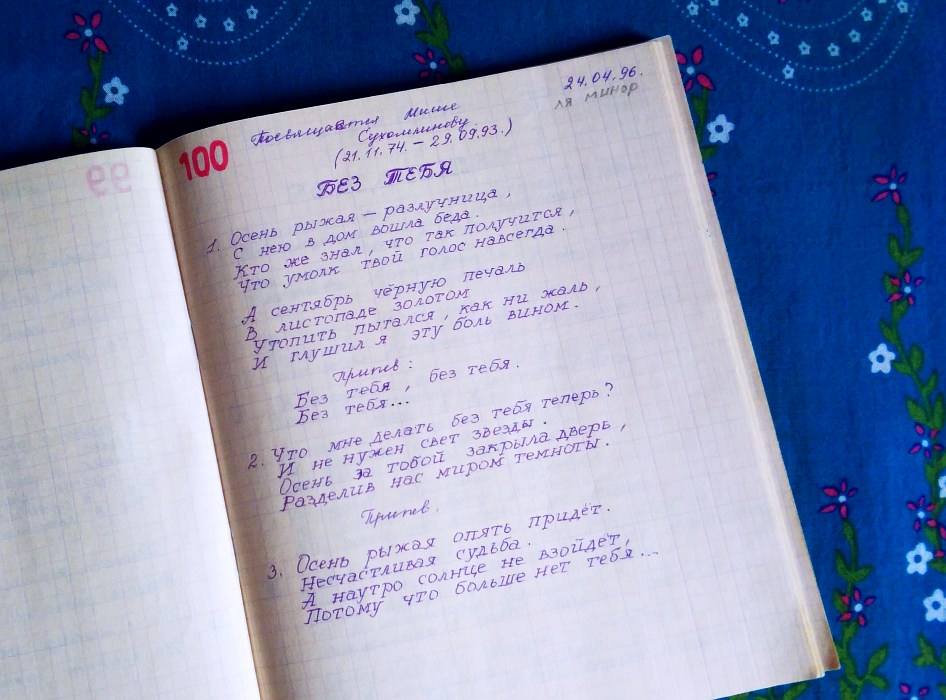 99
100
24.04.96.
ля минор
Посвящается Мише
Сухомлинову
(21.11.74. – 29.09.93.)
БЕЗ ТЕБЯ
1. Осень рыжая – разлучница,
С нею в дом вошла беда.
Кто же знал, что так получится,
Что умолк твой голос навсегда.
А сентябрь чёрную печаль
В листопаде золотом
Утопить пытался, как ни жаль,
И глушил я эту боль вином.
Припев:
Без тебя, без тебя.
Без тебя...
2. Что мне делать без тебя теперь?
И не нужен свет звезды.
Осень за тобой закрыла дверь,
Разделив нас миром темноты.
Припев.
3. Осень рыжая опять придёт.
Несчастливая судьба.
А наутро солнце не взойдёт,
Потому что больше нет тебя...